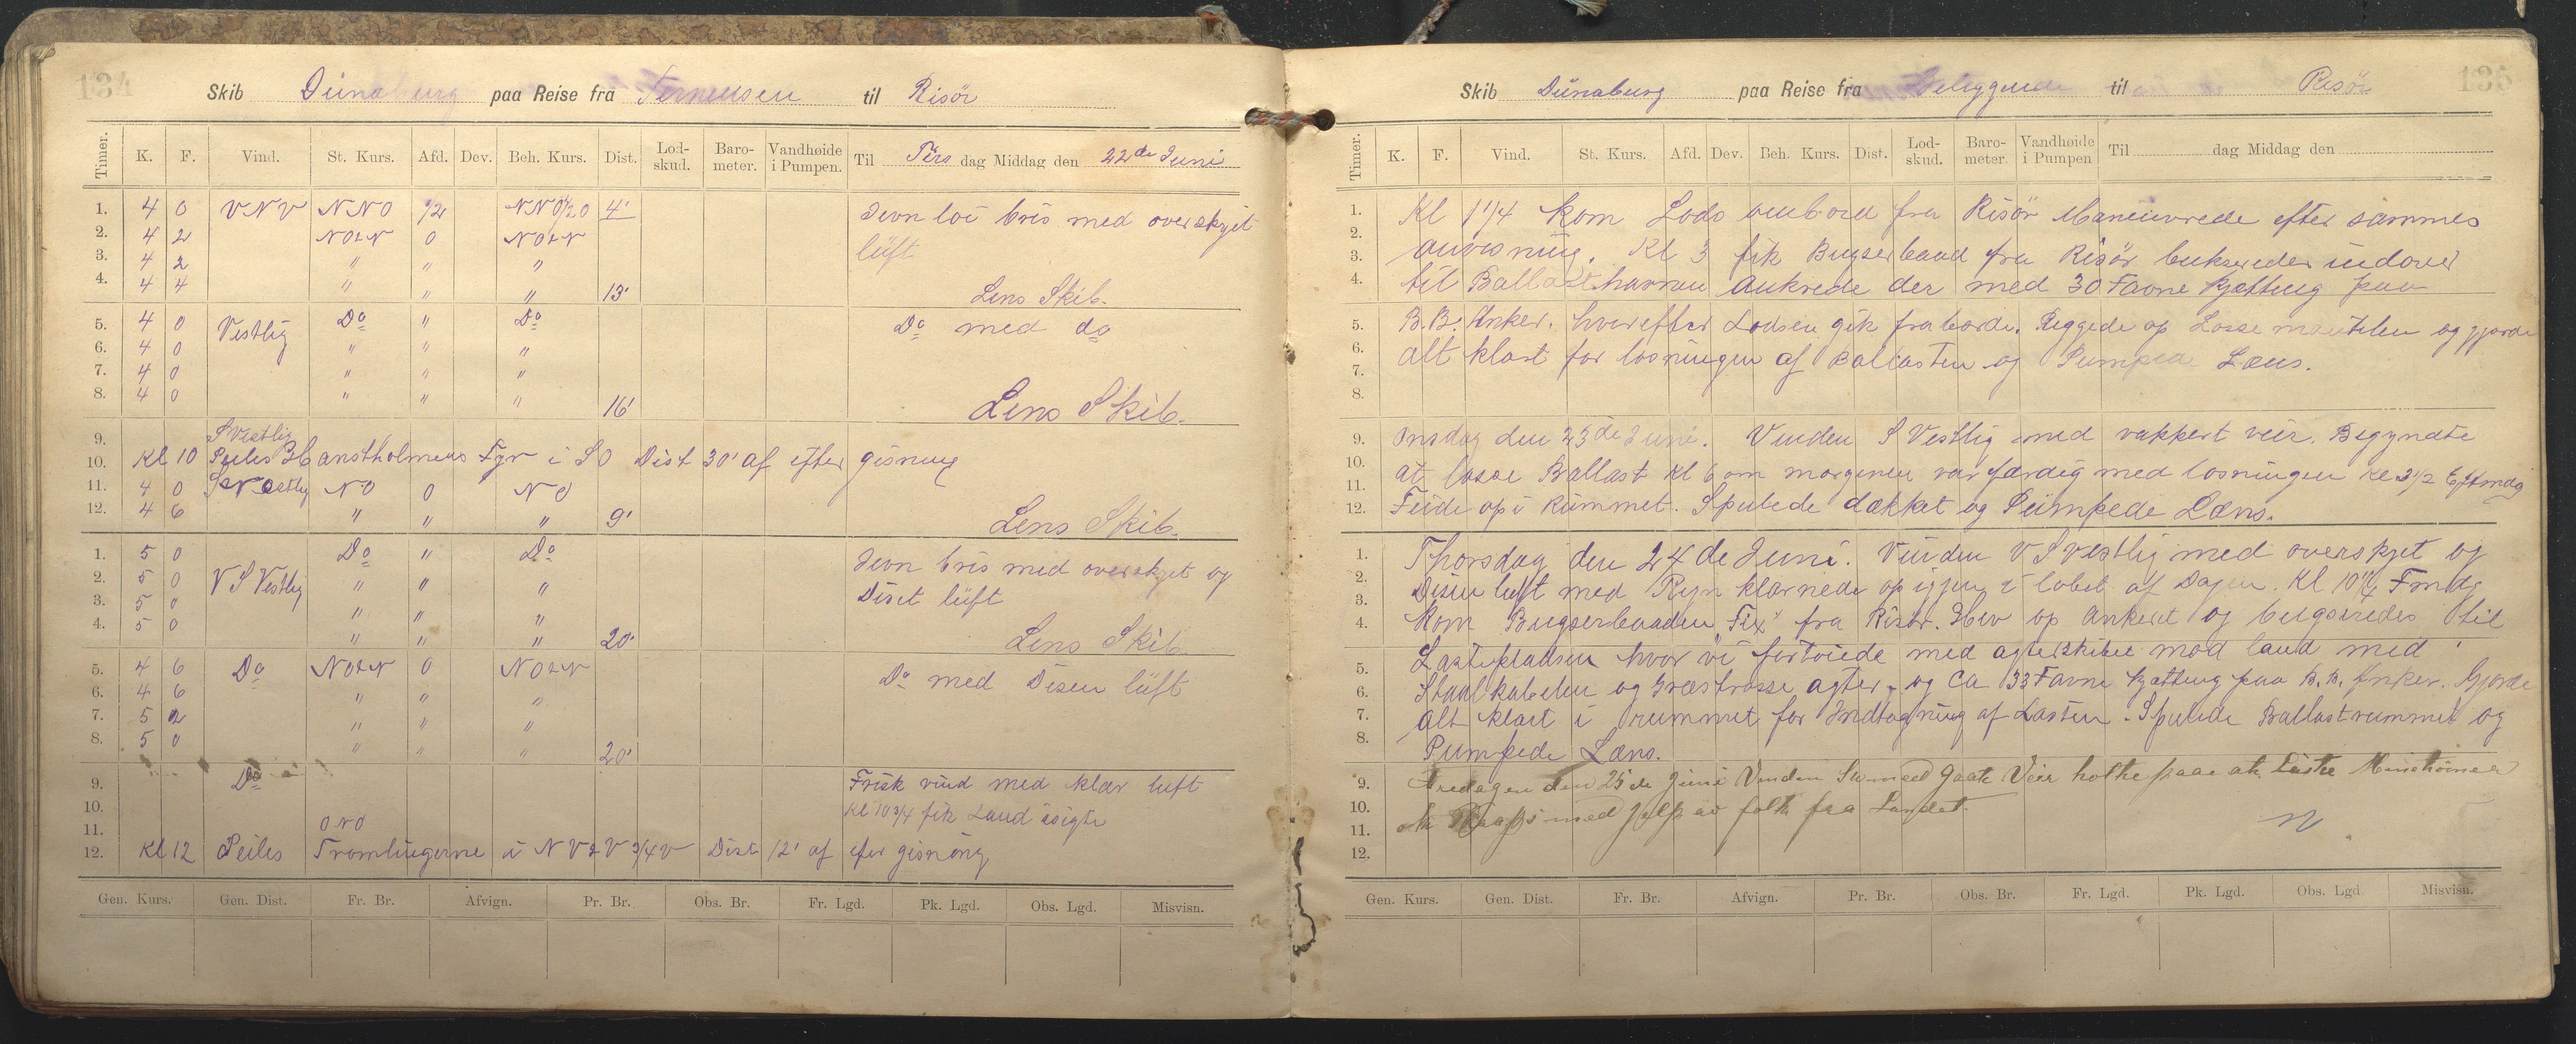 134
Skib Dünaburg paa Reise fra Terneusen til Risör
Timer. K. F. Vind. St. Kurs. Afd. Dev. Beh. Kurs. Dist. Lod-skud. Baro-meter. Vandhøide i Pumpen. Til Tirs dag Middag den 22de Juni
1. 4 0 VNV NNO 1/2 NNO1/2O 4' Jevn loi bris med overskyet
2. 4 2 NOtN 0 NOtN lüft
3. 4 2 " " "
4. 4 4 " " " 13' Lens Skib.
5. 4 0 Vestlig Do " Do Do med do
6. 4 0 " " "
7. 4 0 " " "
8. 4 0 " " " 16' Lens Skib.
9. S Vestlig
10. Kl 10 Peiles Hanstholmens Fyr i SO Dist 30' af efter gisning
11. 4 0 NO 0 NO
12. 4 6 " " " 9' Lens Skib.
1. 5 0 Do " Do Jevn bris med overskyet og
2. 5 0 V S Vestlig " " " Diset lüft
3. 5 0 " " "
4. 5 0 " " " 20' Lens Skib
5. 4 6 Do NOtN 0 NOtN Do med Disen lüft
6. 4 6 " " "
7. 5 2 " " "
8. 5 0 " " " 20'
9. Do Frisk vind med klar luft
10. Kl 10 3/4 fik Land isigte
11. ONO
12. Kl 12 Peiles Tromlingerne i NVtV 3/4 V Dist 12' af efter gisning
Gen. Kurs. Gen. Dist. Fr. Br. Afvign. Pr. Br. Obs. Br. Fr. Lgd. Pk. Lgd. Obs. Lgd. Misvisn.
135
Skib Dünaburg paa Reise fra Beliggende til Risör
Timer. K. F. Vind. St. Kurs. Afd. Dev. Beh. Kurs. Dist. Lod-skud. Baro-meter Vandhøide i Pumpen Til dag Middag den
1. Kl 1 1/4 kom Lods ombord fra Risör Maneuvrede efter sammes
2. anvisning. Kl 3 fik Bugserbaad fra Risör bukseredes indover
3.
4. til Ballasthavnen Ankrede der med 30 Favne Kjætting paa
5. B.B. Anker. hvorefter Lodsen gik fraborde. Riggede op Losse og gjorde
6. alt klart for losningen af Ballasten og Pumpea Læns.
7.
8.
9. Onsdag den 23de Juni. Vinden S Vestlig med vakkert veir. Begyndte
10. at losse Ballast Kl 6 om morgenen var færdig med losningen Kl 3 1/2 Eftmdg
11.
12. Feide op i Rümmet. Spulede dækket og Pümpede Læns.
1. Thorsdag den 24de Juni. Vinden V S Vestlig med overskyet og
2. Disen luft med Regn klarnede op igjen i løbet af Dagen. Kl 10 1/4 Fmdg
3.
4. Kom Bugserbaaden "Fix" fra Risör. Hev op Ankeret og bugseredes til
5. Lastepladsen hvor vi fortøiede med agterskibet mod land med
6. Staalkabelen og Græstrosse agter, og Ca 33 Favne Kjætting paa B.B. Anker. Gjorde
7. alt klart i rummet for Indtagning af Lasten. Spulede Ballastrummet og
8. Pumpede Læns.
9. Fredagen den 25 de Juni Vinden med Gaate Veir holte paae at Laste
10. ok Props med Jelp av folk fra Landet.
11.
12.
Gen. Kurs. Gen. Dist. Fr. Br. Afvign. Pr. Br. Obs. Br. Fr. Lgd. Pk. Lgd. Obs. Lgd Misvisn.